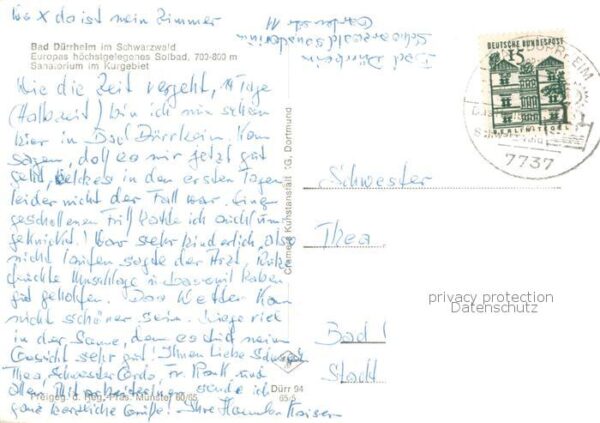 wo X do ist mein Zimmer
Bad Dürrheim im Schwarzwald
Europas höchstgelegenes Solbad, 700-800 m
Sanatorium im Kurgebiet
Wie die Zeit vergeht, 14 Tage
(Halbzeit) bin ich nun schon
hier in Bad Dürrheim. Kann
sagen, daß es mir jetzt gut
geht, welches in den ersten Tagen
leider nicht der Fall war.
geschollenen Fuß hatte ich auch
geknickt! War sehr hinderlich, also
nicht laufen sagte der Arzt,
Umschläge haben
gut geholfen. Das Wetter kann
nicht schöner sein. Liege viel
in der Sonne, dem es tut mein
Gesicht sehr gut! Ihnen Liebe
Thea, Schwester und
allen Mitarbeitern sende ich
ganz herzliche Grüße! Ihre Kaiser
Freigeg. d. Reg.-Präs. Münster 60/65
Dürr 94
65/5
Cramers Kunstanstalt KG, Dortmund
Bad Dürrheim
Schwarzwaldsanatorium
DEUTSCHE BUNDESPOST
15
BERLIN-TEGEL
DÜRRHEIM
7737
Schwester
Thea
Bad
Stadt
privacy protection
Datenschutz